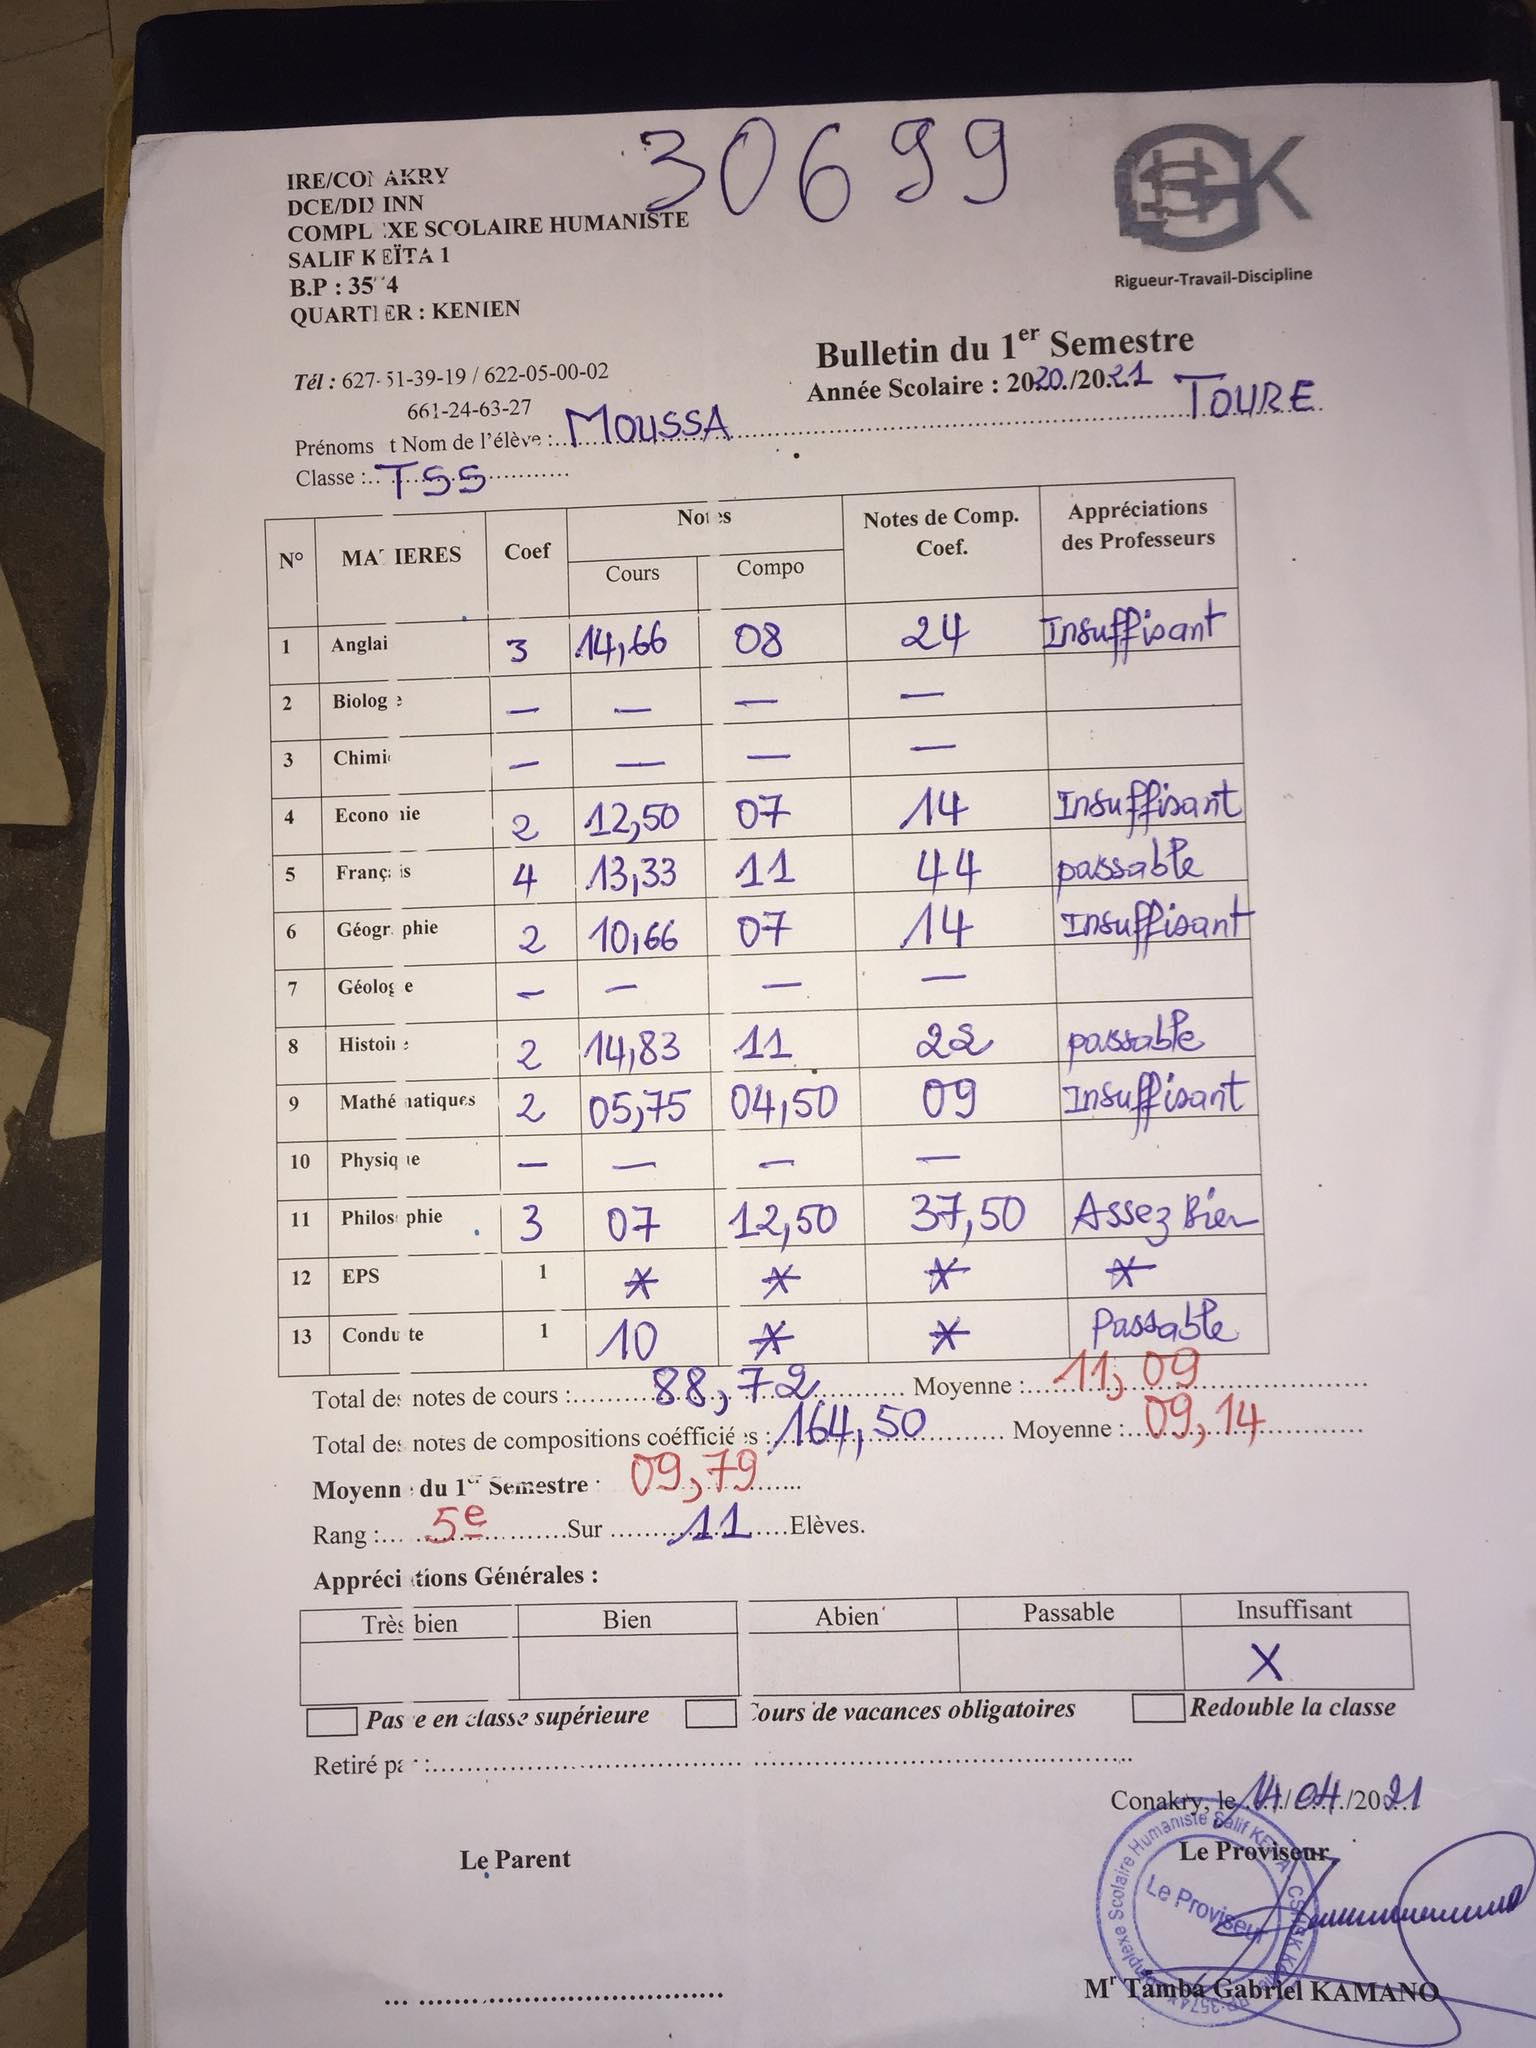 30699
IRE/CONAKRY
DCE/DIXINN
COMPLEXE SCOLAIRE HUMANISTE
SALIF KEÏTA 1
B.P : 3574
QUARTIER : KENIEN
Rigueur-Travail-Discipline
Bulletin du 1er Semestre
Tél : 627-51-39-19 / 622-05-00-02
Année Scolaire : 2020/2021
661-24-63-27
Prénoms et Nom de l'élève : MOUSSA TOURE
Classe : TSS
N° MATIERES Coef Notes Notes de Comp. Coef. Appréciations des Professeurs
Cours Compo
1 Anglai 3 14,66 08 24 Insuffisant
2 Biologie — — — —
3 Chimie — — — —
4 Economie 2 12,50 07 14 Insuffisant
5 Français 4 13,33 11 44 passable
6 Géographie 2 10,66 07 14 Insuffisant
7 Géologie — — — —
8 Histoire 2 14,83 11 22 passable
9 Mathématiques 2 05,75 04,50 09 Insuffisant
10 Physique — — — —
11 Philosophie 3 07 12,50 37,50 Assez Bien
12 EPS 1 * * * *
13 Conduite 1 10 * * Passable
Total des notes de cours : 88,72 Moyenne : 11,09
Total des notes de compositions coéfficiées : 164,50 Moyenne : 09,14
Moyenne du 1er Semestre : 09,79
Rang : 5e Sur 11 Elèves.
Appréciations Générales :
Très bien Bien Abien Passable Insuffisant
X
Passe en classe supérieure Cours de vacances obligatoires Redouble la classe
Retiré par :
Conakry, le 14/04/2021
Le Parent Le Proviseur
Complexe Scolaire Humaniste Salif KEITA
Le Proviseur
Mr Tamba Gabriel KAMANO